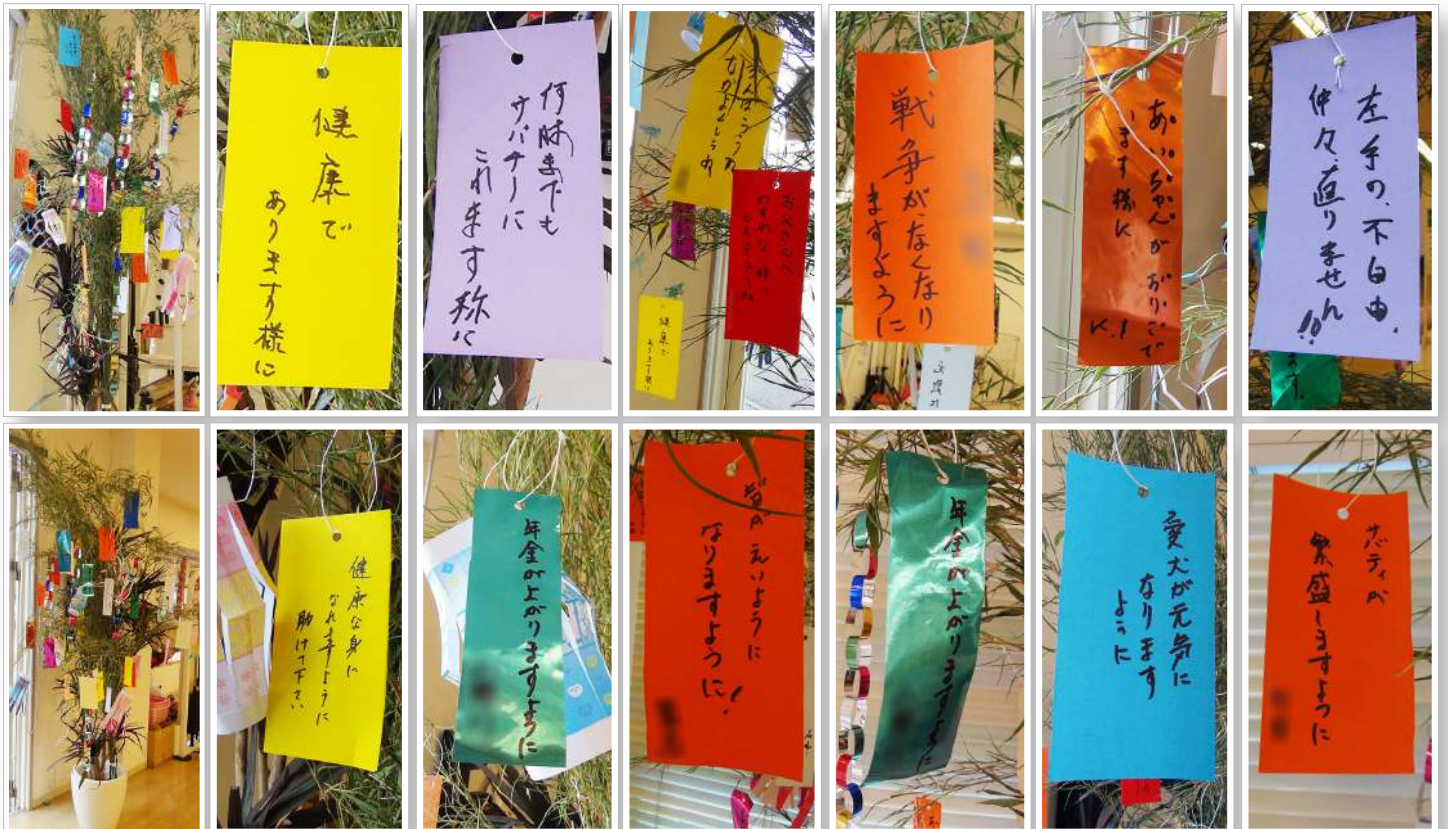 健康で
ありますように様に
何時までも
サバナーに
これます称に
なかよくしようね
お父さんへ
健康で
あります様に
戦争がなくなり
ますように
あいぷちゃんがおりこうで
います様に
K.I
左手の、不自由、
仲々、直りません!!
ます。
健康な身に
なれますように
助けて下さい
年金が上がりますように
えいように
なりますように!
年金が上がりますように
愛犬が元気に
なります
ように
ボディが
繁盛しますように